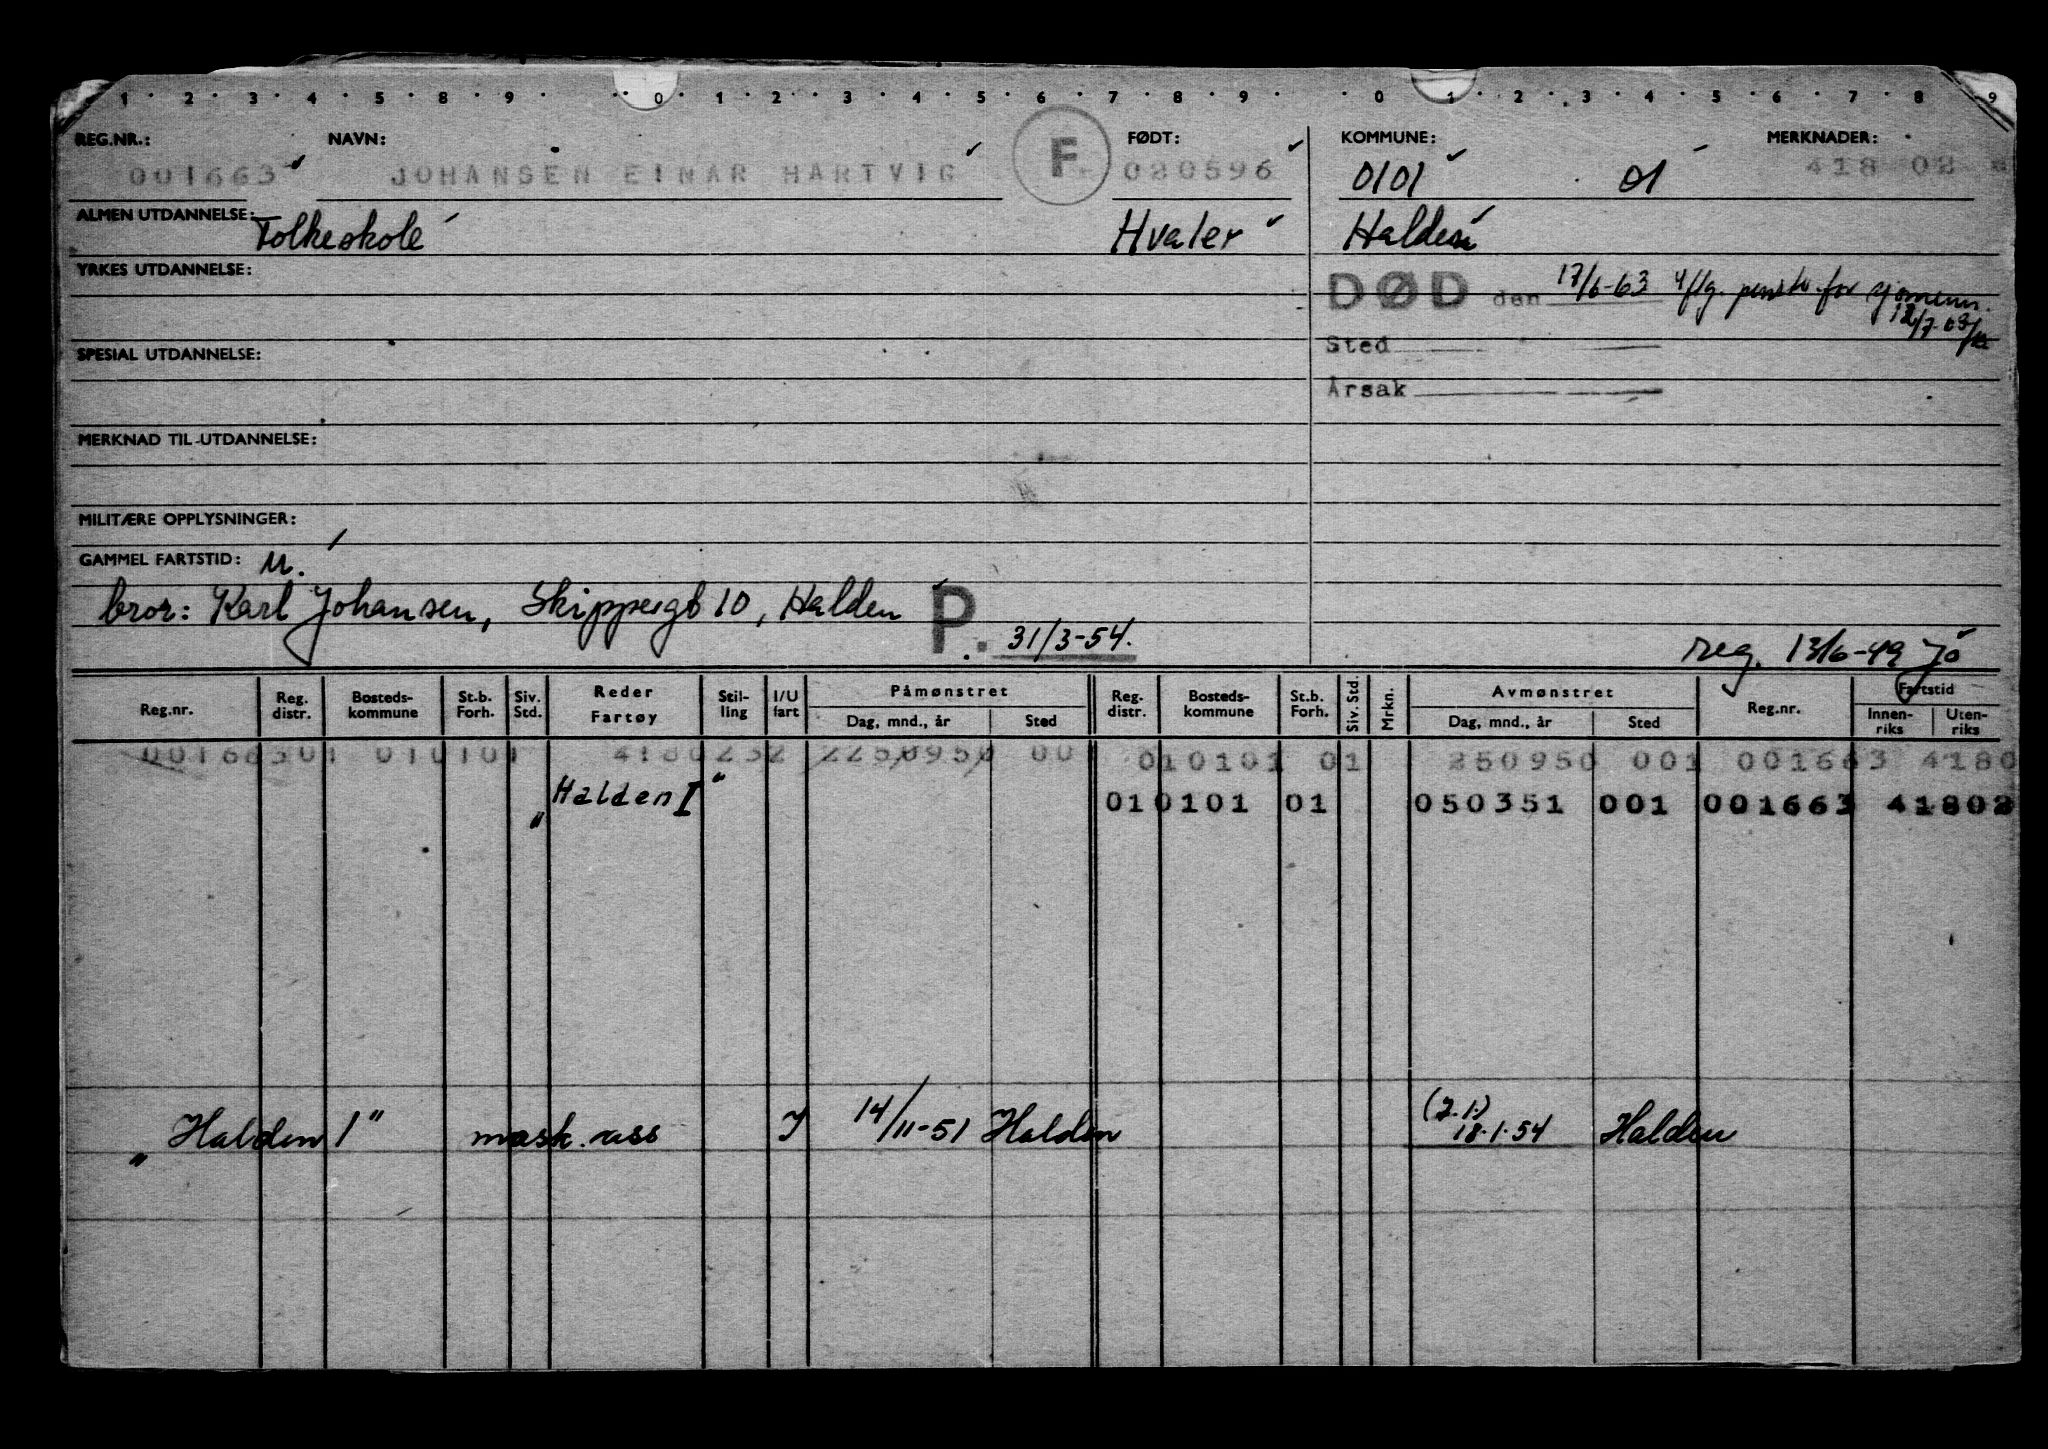 1 · 2 · 3 · 4 · 5 · 8 · 9 · · 0 · 1 · 2 · 3 · 4 · 5 · 6 · 7 · 8 · 9 · · 0 · 1 · 2 · 3 · 4 · 5 · 6 · 7 · 8 · 9
REG.NR.: NAVN: F FØDT: KOMMUNE: MERKNADER:
001663 JOHANSEN EINAR HARTVIG 020596 0101 01 418 02
ALMEN UTDANNELSE: Folkeskole Hvaler Halden
YRKES UTDANNELSE:
DØD den 17/6-63 iflg. pensj. for sjømenn.
12/7-63
SPESIAL UTDANNELSE: Sted
Årsak
MERKNAD TIL UTDANNELSE:
MILITÆRE OPPLYSNINGER:
GAMMEL FARTSTID: U.
bror: Karl Johansen, Skippergt 10, Halden P. 31/3-54.
reg. 13/6-49 Jo
Reg.nr. Reg. distr. Bosteds-kommune St.b. Forh. Siv. Std. Reder Fartøy Stil-ling I/U fart Påmønstret Dag, mnd., år Sted Reg. distr. Bosteds-kommune St.b. Forh. Siv. Std. Mrkn. Avmønstret Dag, mnd., år Sted Reg.nr. Fartstid Innen-riks Uten-riks
00166301 010101 4180232 2250950 00 010101 01 250950 001 001663 4180
"Halden I" 010101 01 050351 001 001663 41802
"Halden I" mask. ass I 14/11-51 Halden (7.1.) 18.1.54 Halden